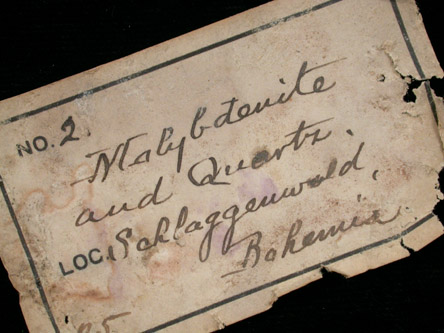 NO. 2.
Molybdenite
and Quartz.
LOC. Schlaggenwald,
Bohemia.